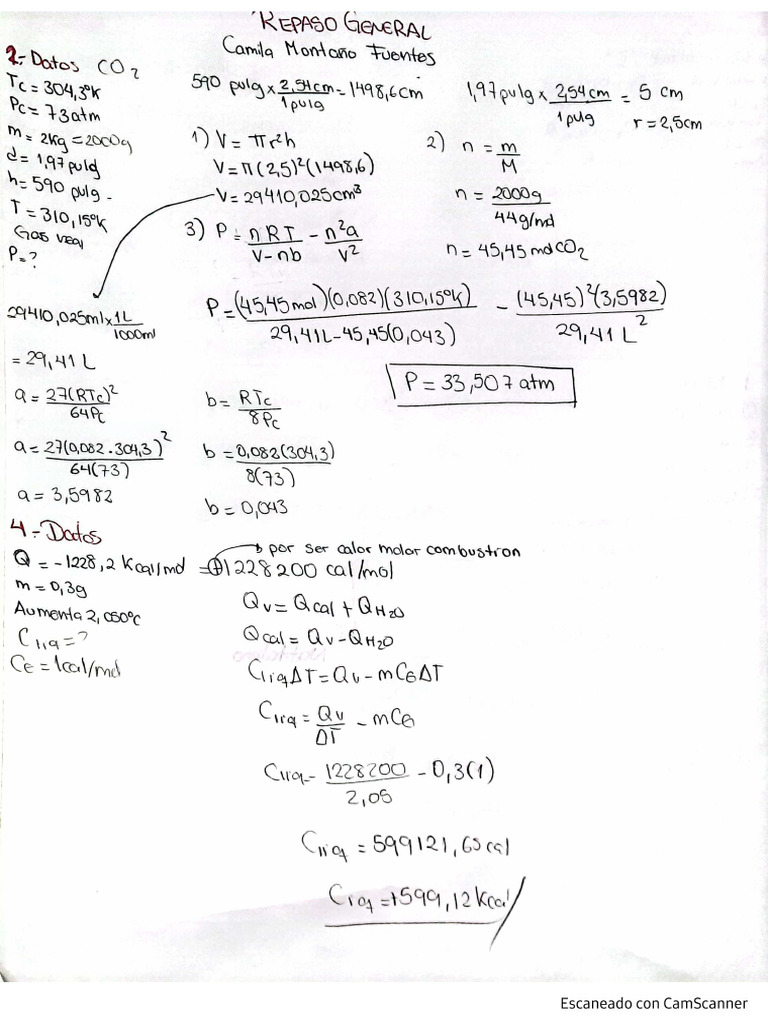 REPASO GENERAL
Camila Montaño Fuentes
2.- Datos CO2
Tc = 304,3°K
Pc = 73 atm
m = 2Kg = 2000g
d = 1,97 pulg
h = 590 pulg.
T = 310,15°K
Gas real
P = ?
590 pulg x 2,54cm/1pulg = 1498,6cm
1,97pulg x 2,54cm/1pulg = 5 cm
r = 2,5cm
1) V = πr²h
V = π(2,5)²(1498,6)
V = 29410,025cm³
2) n = m/M
n = 2000g/44g/mol
n = 45,45 mol CO2
3) P = nRT/V-nb - n²a/V²
P = (45,45mol)(0,082)(310,15°K)/29,41L-45,45(0,043) - (45,45)²(3,5982)/29,41L²
P = 33,507 atm
29410,025ml x 1L/1000ml
= 29,41 L
a = 27(RTc)²/64Pc
a = 27(0,082·304,3)²/64(73)
a = 3,5982
b = RTc/8Pc
b = 0,082(304,3)/8(73)
b = 0,043
4.- Datos
Q = -1228,2 Kcal/mol = +1228200 cal/mol
por ser calor molar combustron
m = 0,3g
Aumenta 2,050°C
C11q = ?
Ce = 1cal/mol
Qv = Qcal + QH2O
Qcal = Qv - QH2O
C11qΔT = Qv - mCeΔT
C11q = Qv/ΔT - mCe
C11q = 1228200/2,05 - 0,3(1)
C11q = 599121,65 cal
C11q = +599,12 Kcal
Escaneado con CamScanner